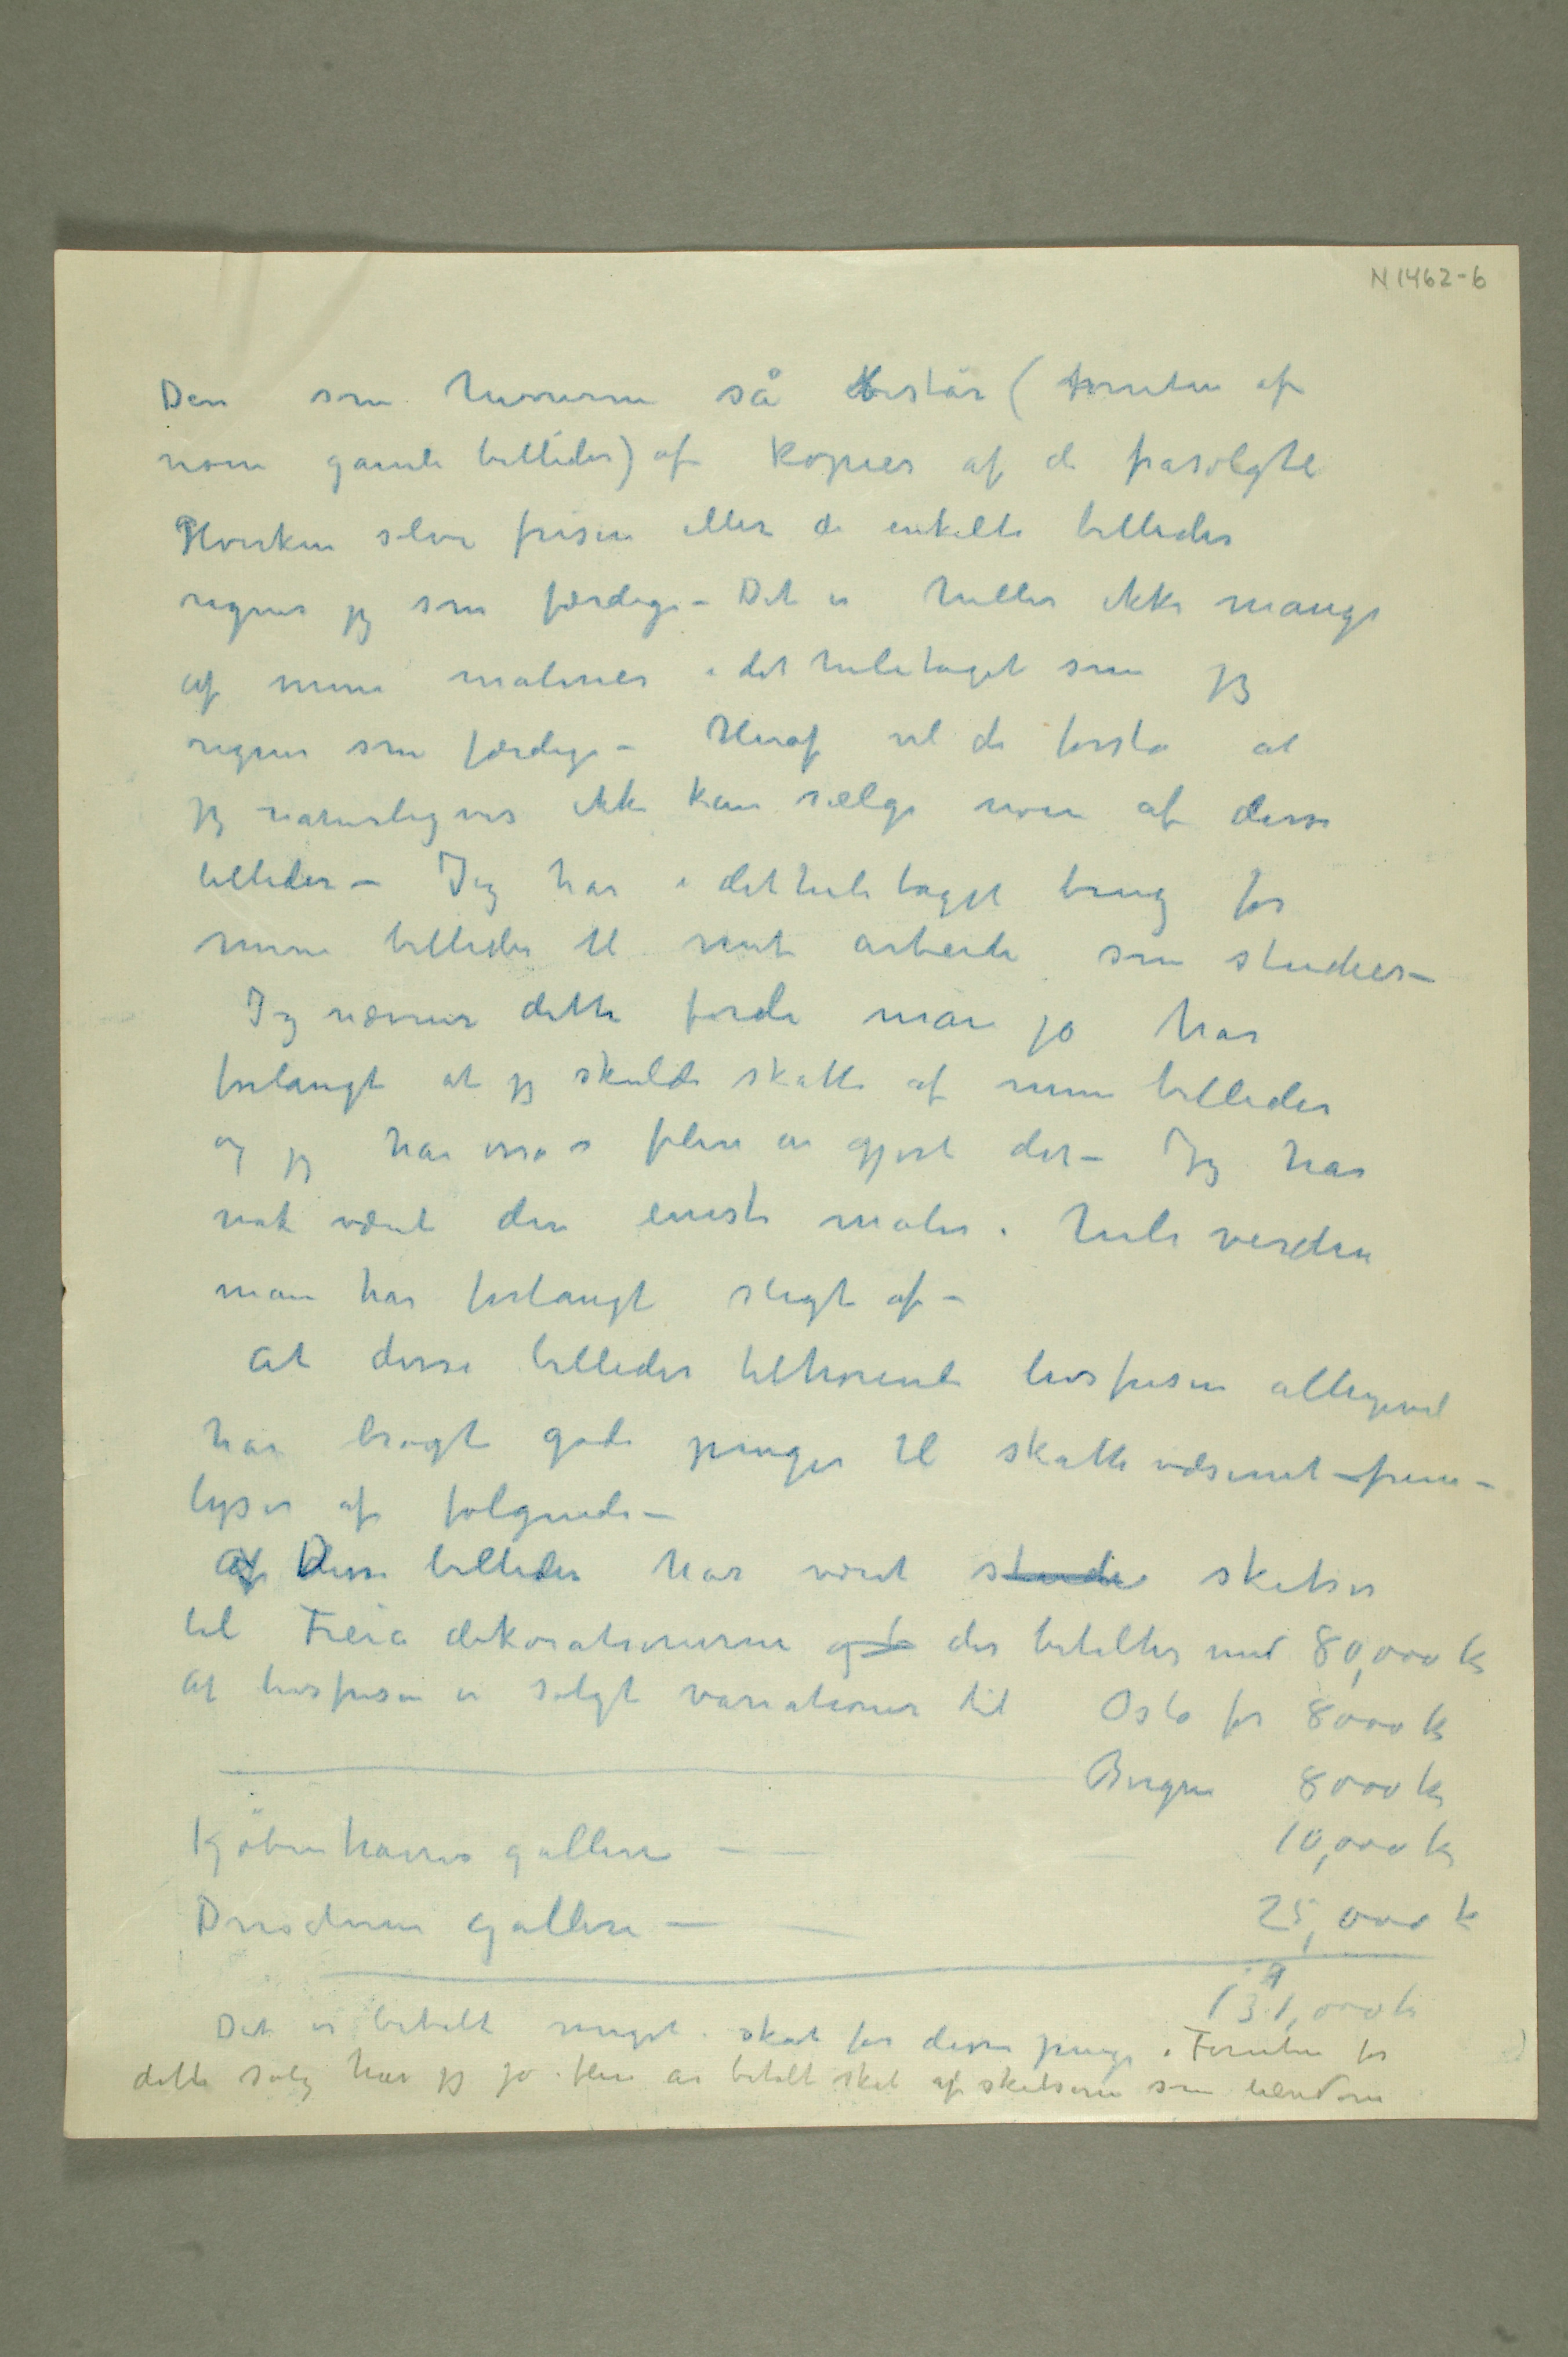 N 1462-6
Den som  så består (foruten af
noen gamle billeder) af kopier af de frasolgte
Hverken selve frisen eller de enkelte billeder
regner jeg som færdige – Det er heller ikke mange
af mine malerier i det heletaget som jeg
regner som færdige – Heraf vil de forstå at
jeg naturligvis ikke kan sælge noen af disse
billeder – Jeg har i detheletaget brug for
mine billeder til mit arbeide som studier –
Jeg nævner dette fordi man jo har
forlangt at jeg skulde skatte af mine billeder
og jeg har også i flere år gjort det – Jeg har
nok vært den eneste maler i hele verden
man har forlangt sligt af –
At disse billeder tilhørende livsfrisen alligevel
har bragt gode penger til skattevæsenet – frem-
lyser af følgende –
Af Disse billeder har været studier skitser
til Freia dekorationerne der betaltes med 80,000 kr
Af livsfrisen er solgt variationer til Oslo for 8000 kr
Bergen 8000 kr
Kjöbenhavns galleri – — — 10,000 kr
Dresdener Galleri — — 25,000 k
131,000 kr
Det er betalt meget i skat for disse penge. Foruten for
dette salg har jeg jo i flere år betalt skat af skitserne som eiendom